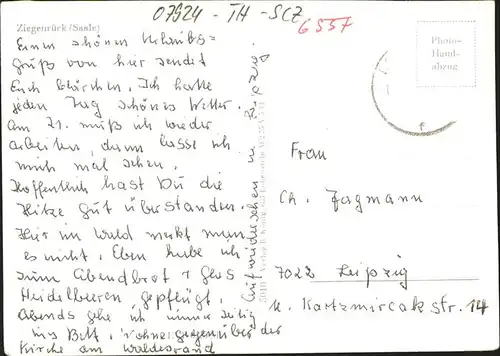 07924 - TH - SCZ
6557
Ziegenrück (Saale)
Einen schönen Urlaubs=
gruß von hier sendet
Euch Klärchen. Ich hatte
jeden Tag schönes Wetter.
Am 21. muß ich wieder
arbeiten, dann lasse ich
mich mal sehen.
Hoffentlich hast Du die
Hitze gut überstanden.
Hier im Wald merkt man
es nicht. Eben habe ich
zum Abendbrot 1 Glas
Heidelbeeren gepflügt.
Abends gehe ich immer zeitig
ins Bett. Wohne gegenüber der
Kirche am Waldesrand
Auf wiedersehen in
Photo-
Hand-
abzug
Frau
Ch. Jagmann
7022 Leipzig
Kartzmircak str. 14